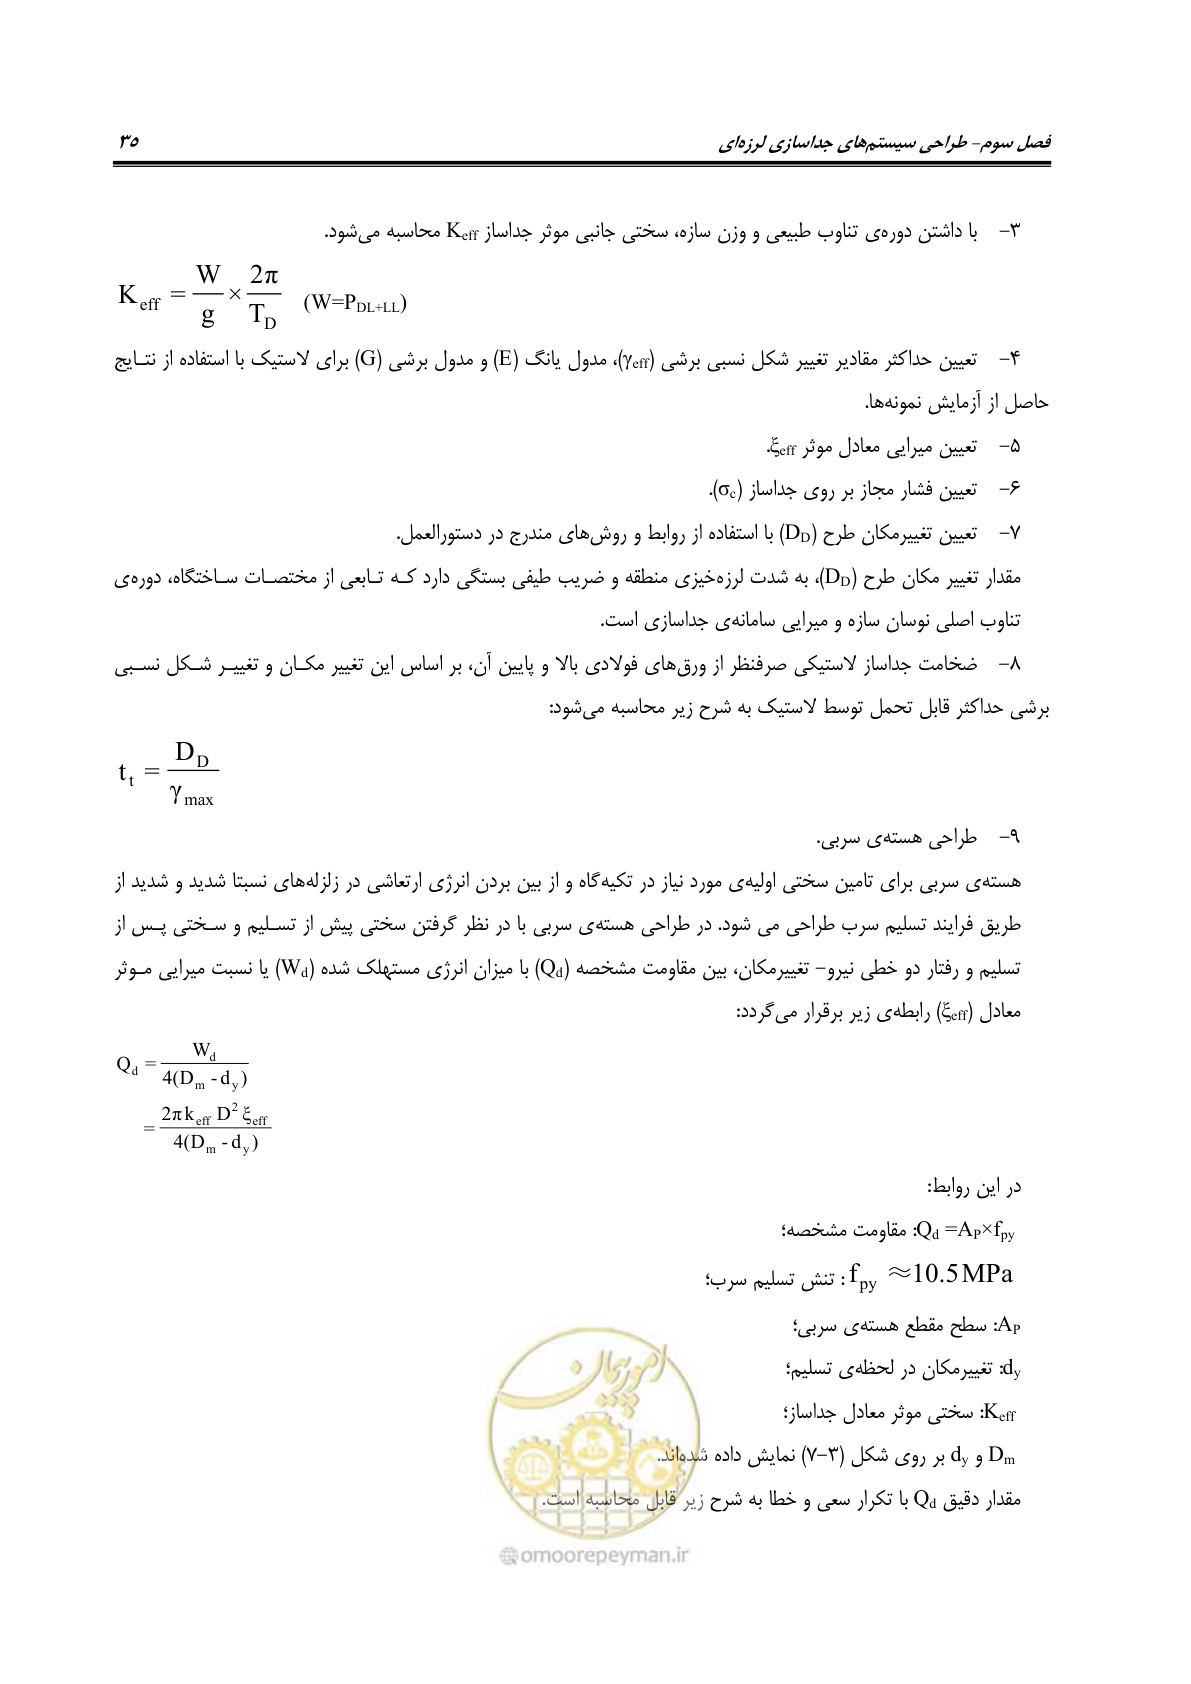 فصل سوم- طراحی سیستم‌های جداسازی لرزه‌ای ۳۵
۳- با داشتن دوره‌ی تناوب طبیعی و وزن سازه، سختی جانبی موثر جداساز Keff محاسبه می‌شود.
Keff = W/g × 2π/TD (W=PDL+LL)
۴- تعیین حداکثر مقادیر تغییر شکل نسبی برشی (γeff)، مدول یانگ (E) و مدول برشی (G) برای لاستیک با استفاده از نتایج
حاصل از آزمایش نمونه‌ها.
۵- تعیین میرایی معادل موثر ξeff.
۶- تعیین فشار مجاز بر روی جداساز (σc).
۷- تعیین تغییرمکان طرح (DD) با استفاده از روابط و روش‌های مندرج در دستورالعمل.
مقدار تغییر مکان طرح (DD)، به شدت لرزه‌خیزی منطقه و ضریب طیفی بستگی دارد که تابعی از مختصات ساختگاه، دوره‌ی
تناوب اصلی نوسان سازه و میرایی سامانه‌ی جداسازی است.
۸- ضخامت جداساز لاستیکی صرفنظر از ورق‌های فولادی بالا و پایین آن، بر اساس این تغییر مکان و تغییر شکل نسبی
برشی حداکثر قابل تحمل توسط لاستیک به شرح زیر محاسبه می‌شود:
tt = DD/γmax
۹- طراحی هسته‌ی سربی.
هسته‌ی سربی برای تامین سختی اولیه‌ی مورد نیاز در تکیه‌گاه و از بین بردن انرژی ارتعاشی در زلزله‌های نسبتا شدید و شدید از
طریق فرایند تسلیم سرب طراحی می شود. در طراحی هسته‌ی سربی با در نظر گرفتن سختی پیش از تسلیم و سختی پس از
تسلیم و رفتار دو خطی نیرو- تغییرمکان، بین مقاومت مشخصه (Qd) با میزان انرژی مستهلک شده (Wd) یا نسبت میرایی موثر
معادل (ξeff) رابطه‌ی زیر برقرار می‌گردد:
Qd = Wd/4(Dm - dy)
= 2πkeff D² ξeff/4(Dm - dy)
در این روابط:
Qd =AP×fpy: مقاومت مشخصه؛
fpy ≈10.5MPa : تنش تسلیم سرب؛
AP: سطح مقطع هسته‌ی سربی؛
dy: تغییرمکان در لحظه‌ی تسلیم؛
Keff: سختی موثر معادل جداساز؛
Dm و dy بر روی شکل (۳-۷) نمایش داده شده‌اند.
مقدار دقیق Qd با تکرار سعی و خطا به شرح زیر قابل محاسبه است.
امور پیمان
@omoorepeyman.ir